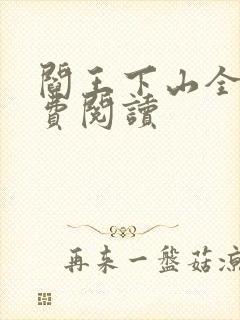 閻王下山全
費閱讀
再來一盤菇涼